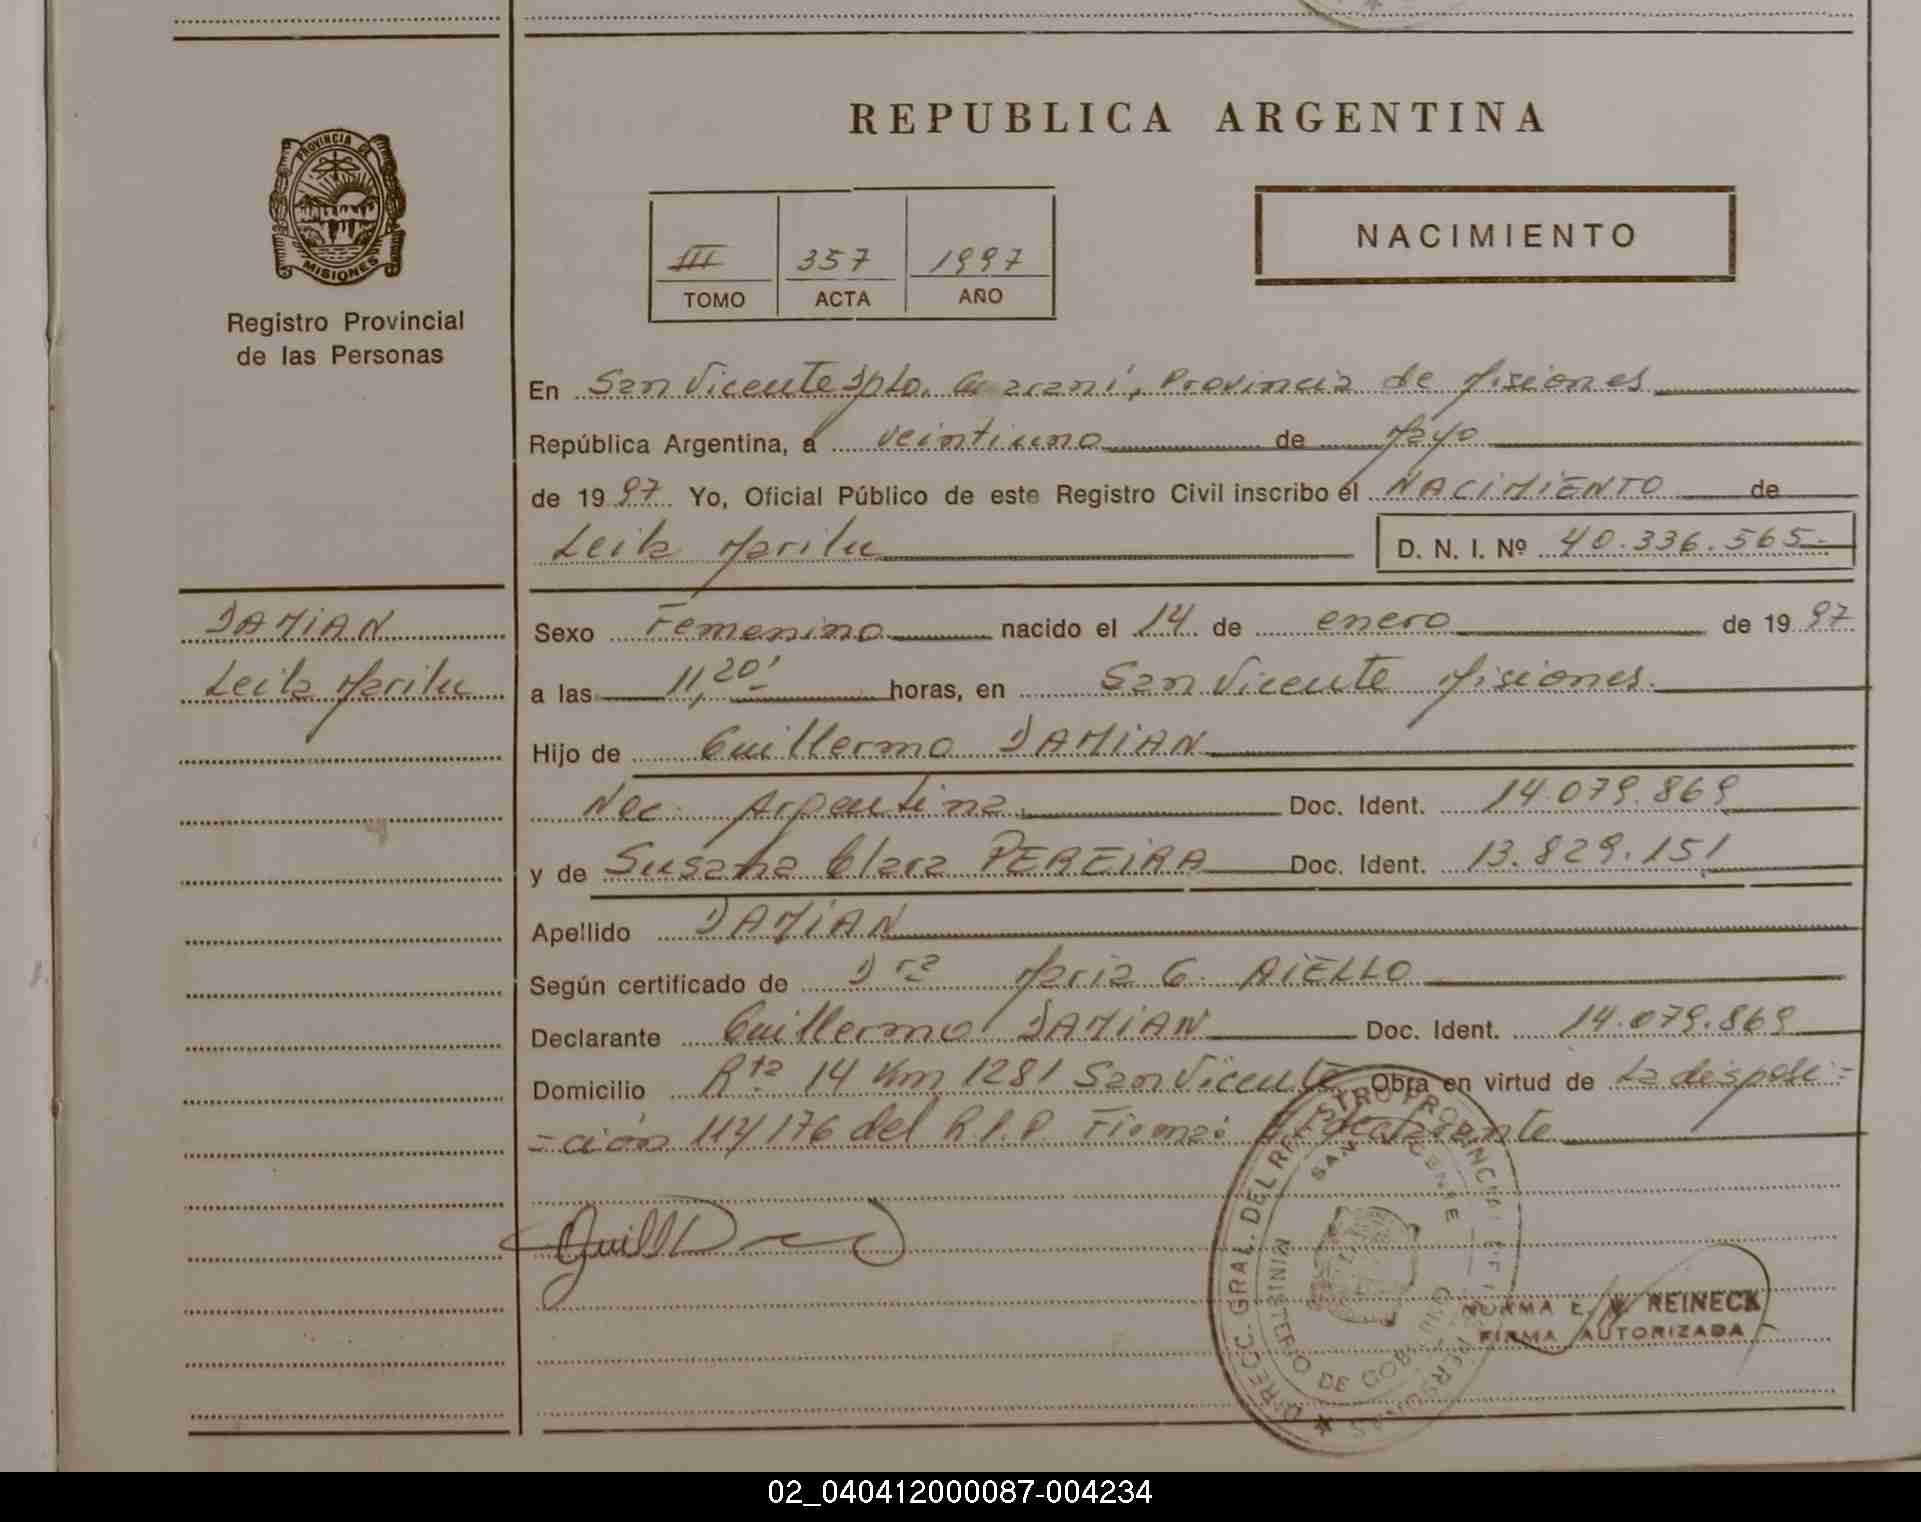 REPUBLICA ARGENTINA
PROVINCIA DE
MISIONES
Registro Provincial
de las Personas
III 357 1997
TOMO ACTA AÑO
NACIMIENTO
En San Vicente Dpto. Guaraní, Provincia de Misiones
República Argentina, a veintiuno de Mayo
de 1997 Yo, Oficial Público de este Registro Civil inscribo el NACIMIENTO de
Leila Marilu D. N. I. Nº 40.336.565-
DAMIAN
Leila Marilu
Sexo Femenino nacido el 14 de enero de 1997
a las 11,20' horas, en San Vicente Misiones.
Hijo de Guillermo DAMIAN
Nac. Argentina. Doc. Ident. 14.079.869
y de Susana Clara PEREIRA Doc. Ident. 13.829.151
Apellido DAMIAN
Según certificado de Dra Maria G. AIELLO
Declarante Guillermo DAMIAN Doc. Ident. 14.079.869
Domicilio Rta 14 Km 1281 San Vicente Obra en virtud de La dispoci=
=ción 114/176 del R.P.P. Firma:
DIRECC. GRAL. DEL REGISTRO PROVINCIAL DE LAS PERSONAS
SAN VICENTE
MINISTERIO DE GOB
NORMA E. REINECK
FIRMA AUTORIZADA
02_040412000087-004234